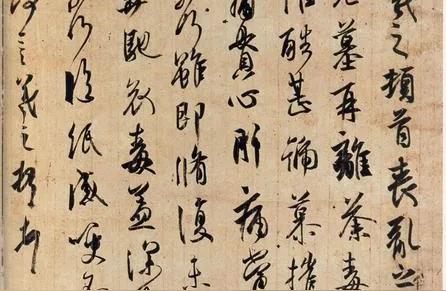 羲之頓首喪亂之
先墓再離荼毒
惟酷甚號慕摧
痛貫心肝痛當
何雖即脩復未
奔馳哀毒益深
何臨紙感哽不
何言羲之頓首